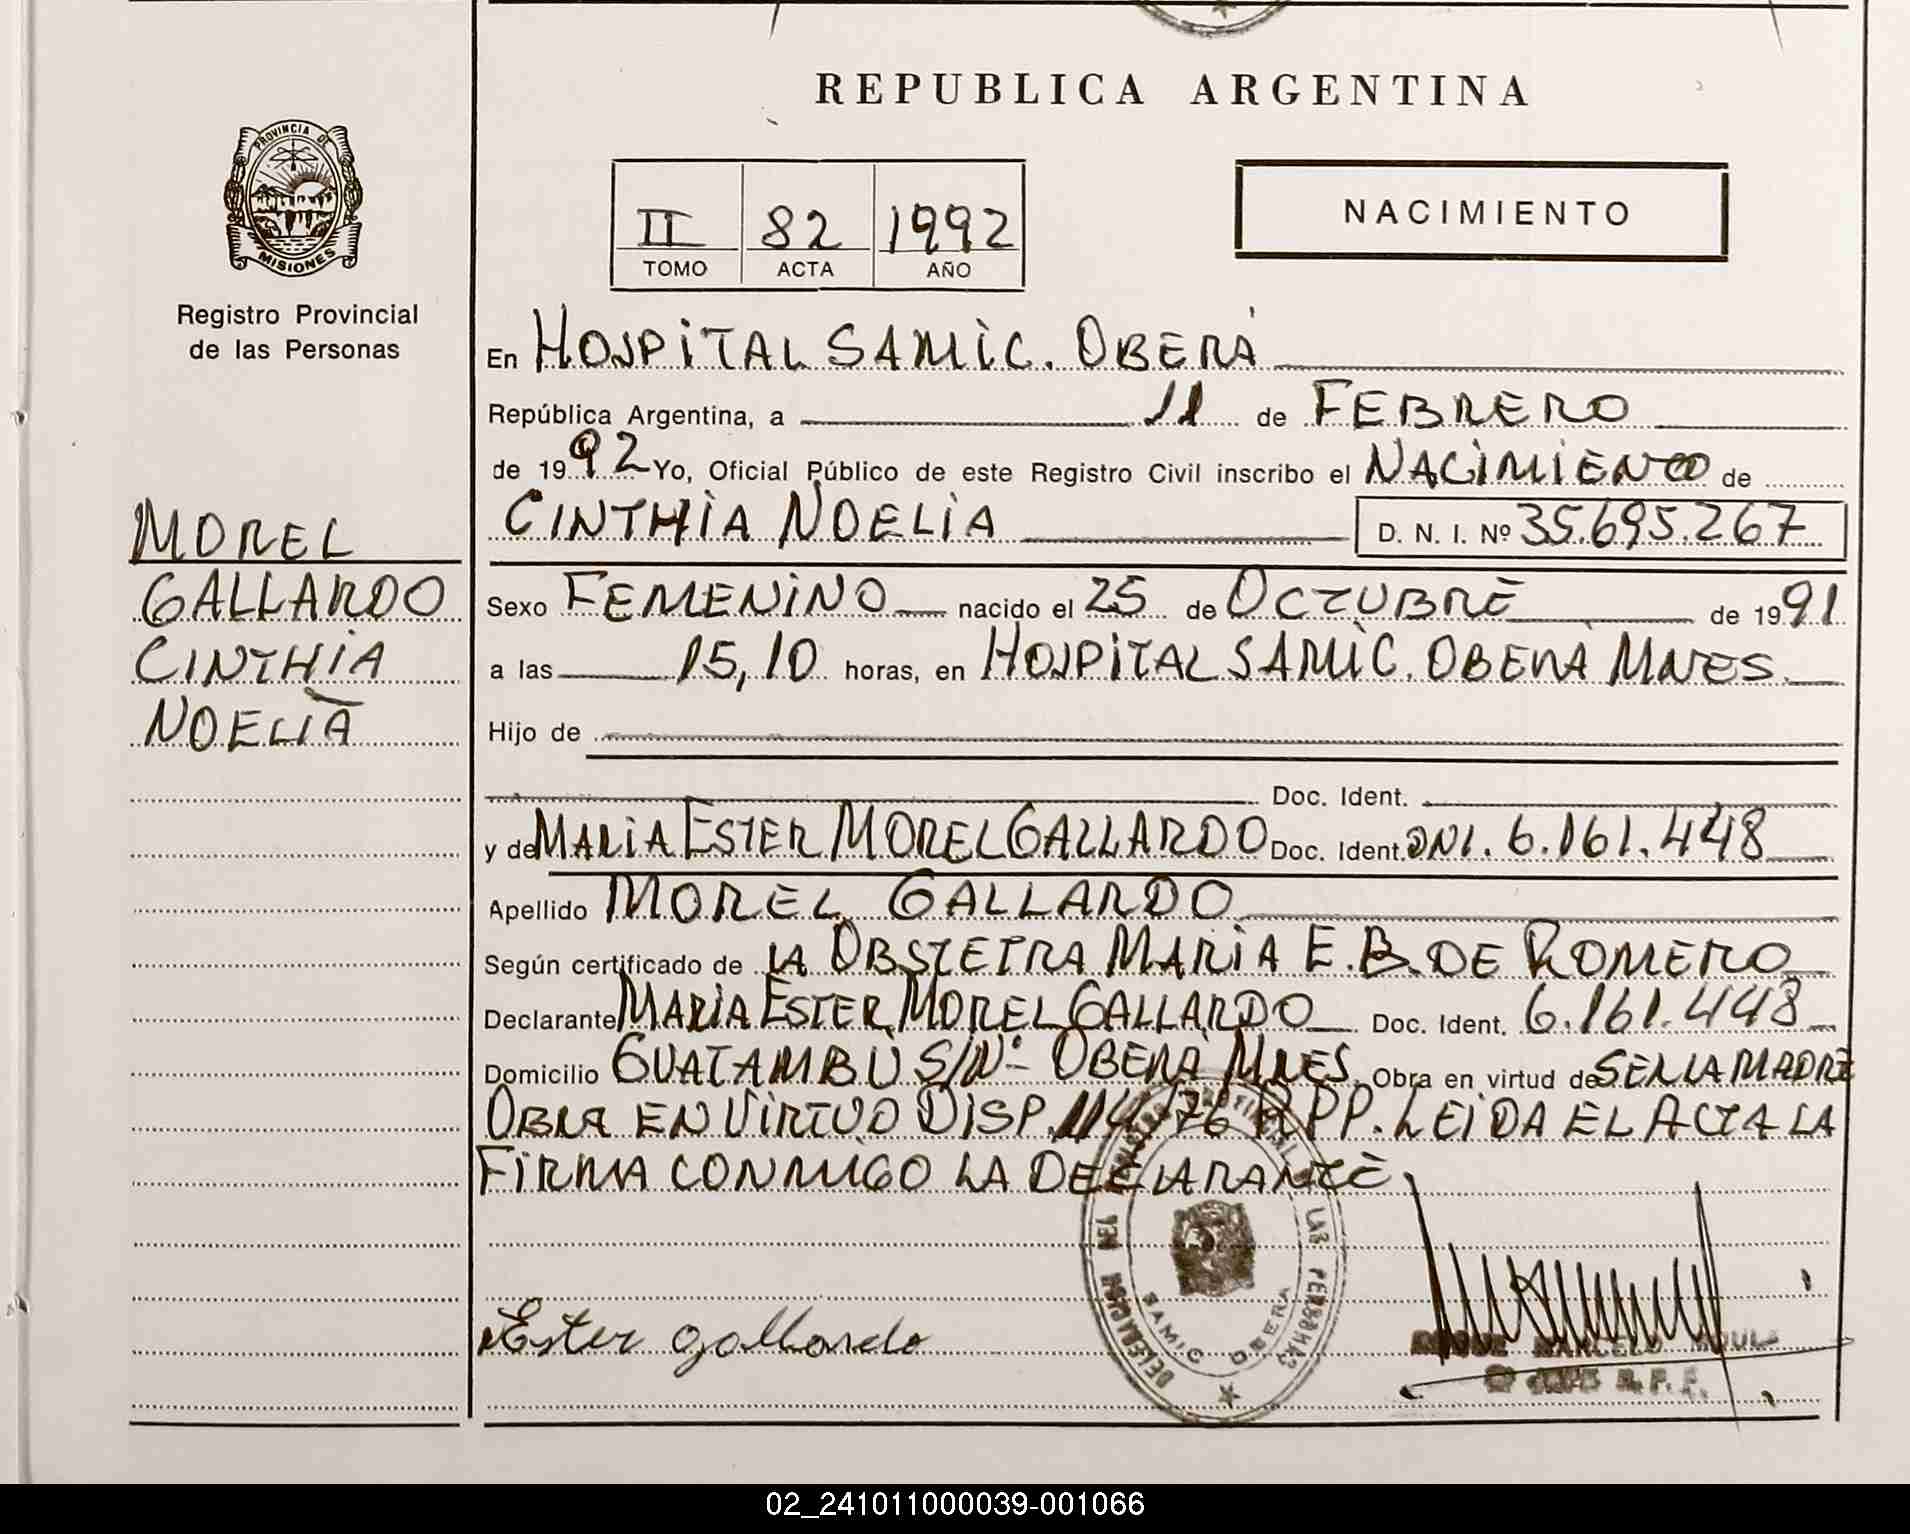 REPUBLICA ARGENTINA
PROVINCIA DE
MISIONES
Registro Provincial
de las Personas
II 82 1992
TOMO ACTA AÑO
NACIMIENTO
MOREL
GALLARDO
CINTHIA
NOELIA
En HOSPITAL SAMIC. OBERÁ
República Argentina, a 11 de FEBRERO
de 1992 Yo, Oficial Público de este Registro Civil inscribo el NACIMIENTO de
CINTHIA NOELIA D. N. I. Nº 35.695.267
Sexo FEMENINO nacido el 25 de OCTUBRE de 1991
a las 15,10 horas, en HOSPITAL SAMIC. OBERÁ MNES.
Hijo de
Doc. Ident.
y de MARIA ESTER MOREL GALLARDO Doc. Ident. DNI. 6.161.448
Apellido MOREL GALLARDO
Según certificado de LA OBSTETRA MARIA E.B. DE ROMERO
Declarante MARIA ESTER MOREL GALLARDO Doc. Ident. 6.161.448
Domicilio GUATAMBÚ S/Nº- OBERÁ MNES. Obra en virtud de SER LA MADRE
OBRA EN VIRTUD DISP. 114/76 RPP. LEIDA EL ACTA LA
FIRMA CONMIGO LA DECLARANTE
Ester gallardo
DELEGACION DEL REGISTRO PROVINCIAL DE LAS PERSONAS
SAMIC OBERA
ROQUE MARCELO
JEFE R. P. P.
02_241011000039-001066